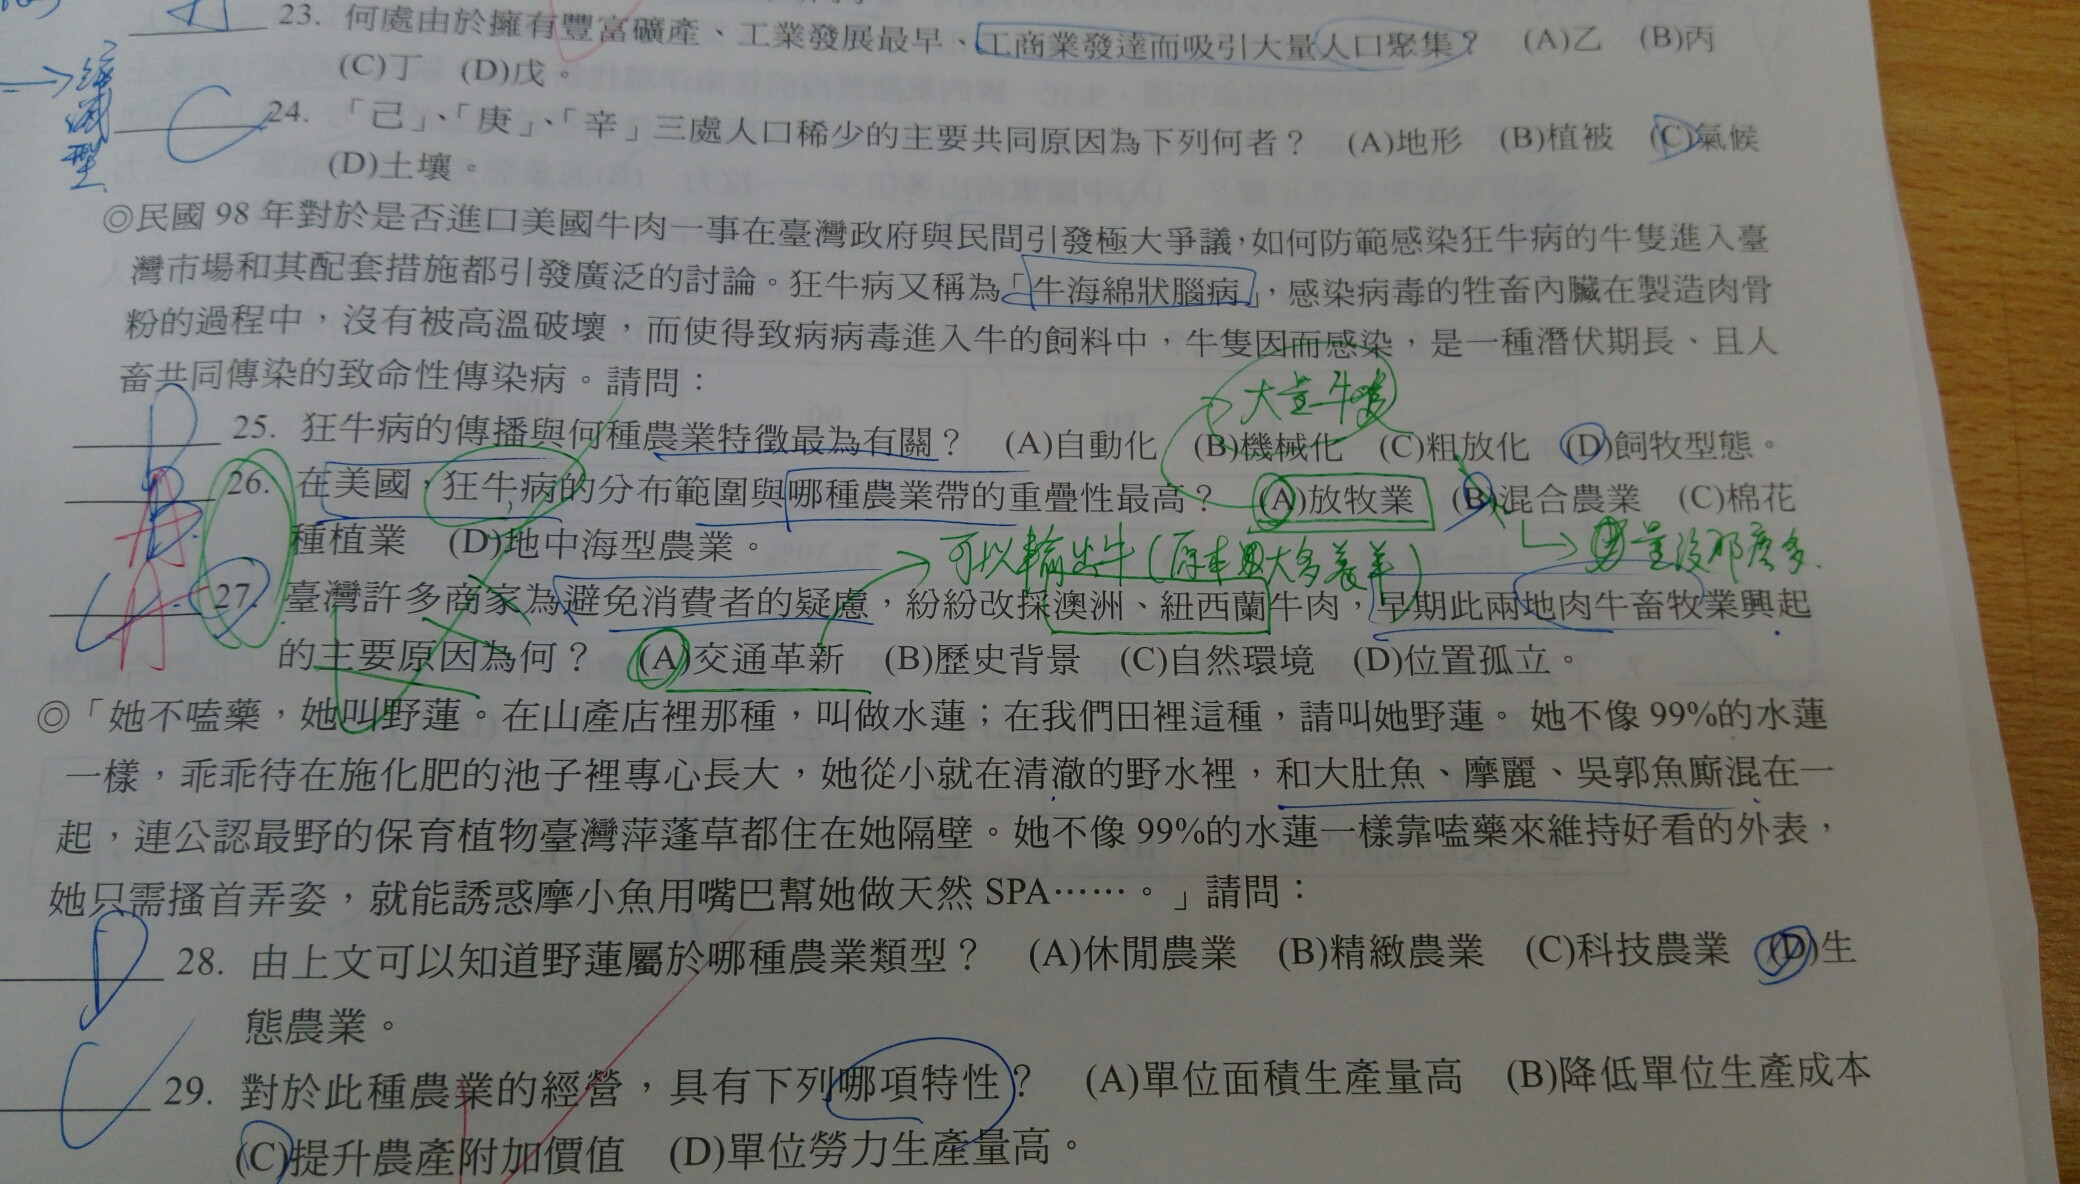 23. 何處由於擁有豐富礦產、工業發展最早、工商業發達而吸引大量人口聚集? (A)乙 (B)丙
(C)丁 (D)戊。
→縮減型
C 24. 「己」、「庚」、「辛」三處人口稀少的主要共同原因為下列何者? (A)地形 (B)植被 (C)氣候
(D)土壤。
◎民國 98 年對於是否進口美國牛肉一事在臺灣政府與民間引發極大爭議,如何防範感染狂牛病的牛隻進入臺
灣市場和其配套措施都引發廣泛的討論。狂牛病又稱為「牛海綿狀腦病」,感染病毒的牲畜內臟在製造肉骨
粉的過程中,沒有被高溫破壞,而使得致病病毒進入牛的飼料中,牛隻因而感染,是一種潛伏期長、且人
畜共同傳染的致命性傳染病。請問:
大量牛隻
D 25. 狂牛病的傳播與何種農業特徵最為有關? (A)自動化 (B)機械化 (C)粗放化 (D)飼牧型態。
B A 26. 在美國,狂牛病的分布範圍與哪種農業帶的重疊性最高? (A)放牧業 (B)混合農業 (C)棉花
種植業 (D)地中海型農業。
→可以輸出牛(原本以大多養羊)
→量沒那麼多.
C A 27. 臺灣許多商家為避免消費者的疑慮,紛紛改採澳洲、紐西蘭牛肉,早期此兩地肉牛畜牧業興起
的主要原因為何? (A)交通革新 (B)歷史背景 (C)自然環境 (D)位置孤立。
◎「她不嗑藥,她叫野蓮。在山產店裡那種,叫做水蓮;在我們田裡這種,請叫她野蓮。她不像 99%的水蓮
一樣,乖乖待在施化肥的池子裡專心長大,她從小就在清澈的野水裡,和大肚魚、摩麗、吳郭魚廝混在一
起,連公認最野的保育植物臺灣萍蓬草都住在她隔壁。她不像 99%的水蓮一樣靠嗑藥來維持好看的外表,
她只需搔首弄姿,就能誘惑摩小魚用嘴巴幫她做天然 SPA……。」請問:
D 28. 由上文可以知道野蓮屬於哪種農業類型? (A)休閒農業 (B)精緻農業 (C)科技農業 (D)生
態農業。
C 29. 對於此種農業的經營,具有下列哪項特性? (A)單位面積生產量高 (B)降低單位生產成本
(C)提升農產附加價值 (D)單位勞力生產量高。